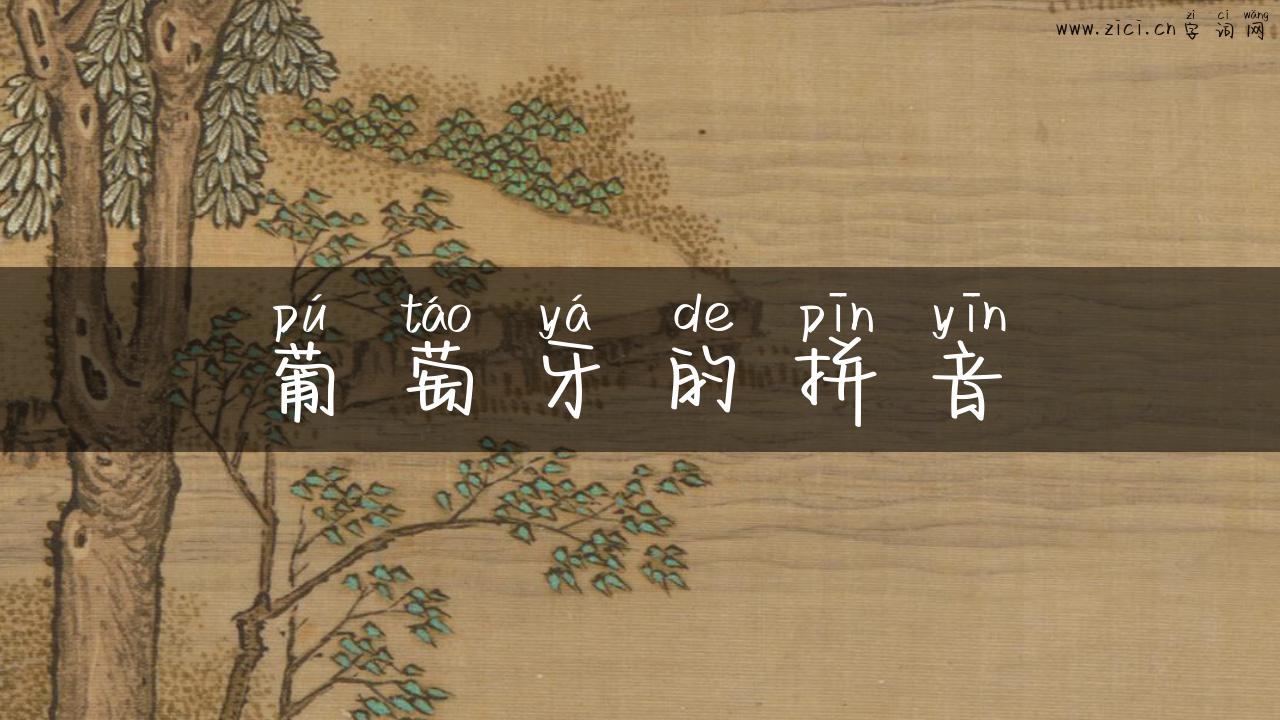 zì cí wǎng
www.zici.cn 字 词 网
pú táo yá de pīn yīn
葡 萄 牙 的 拼 音